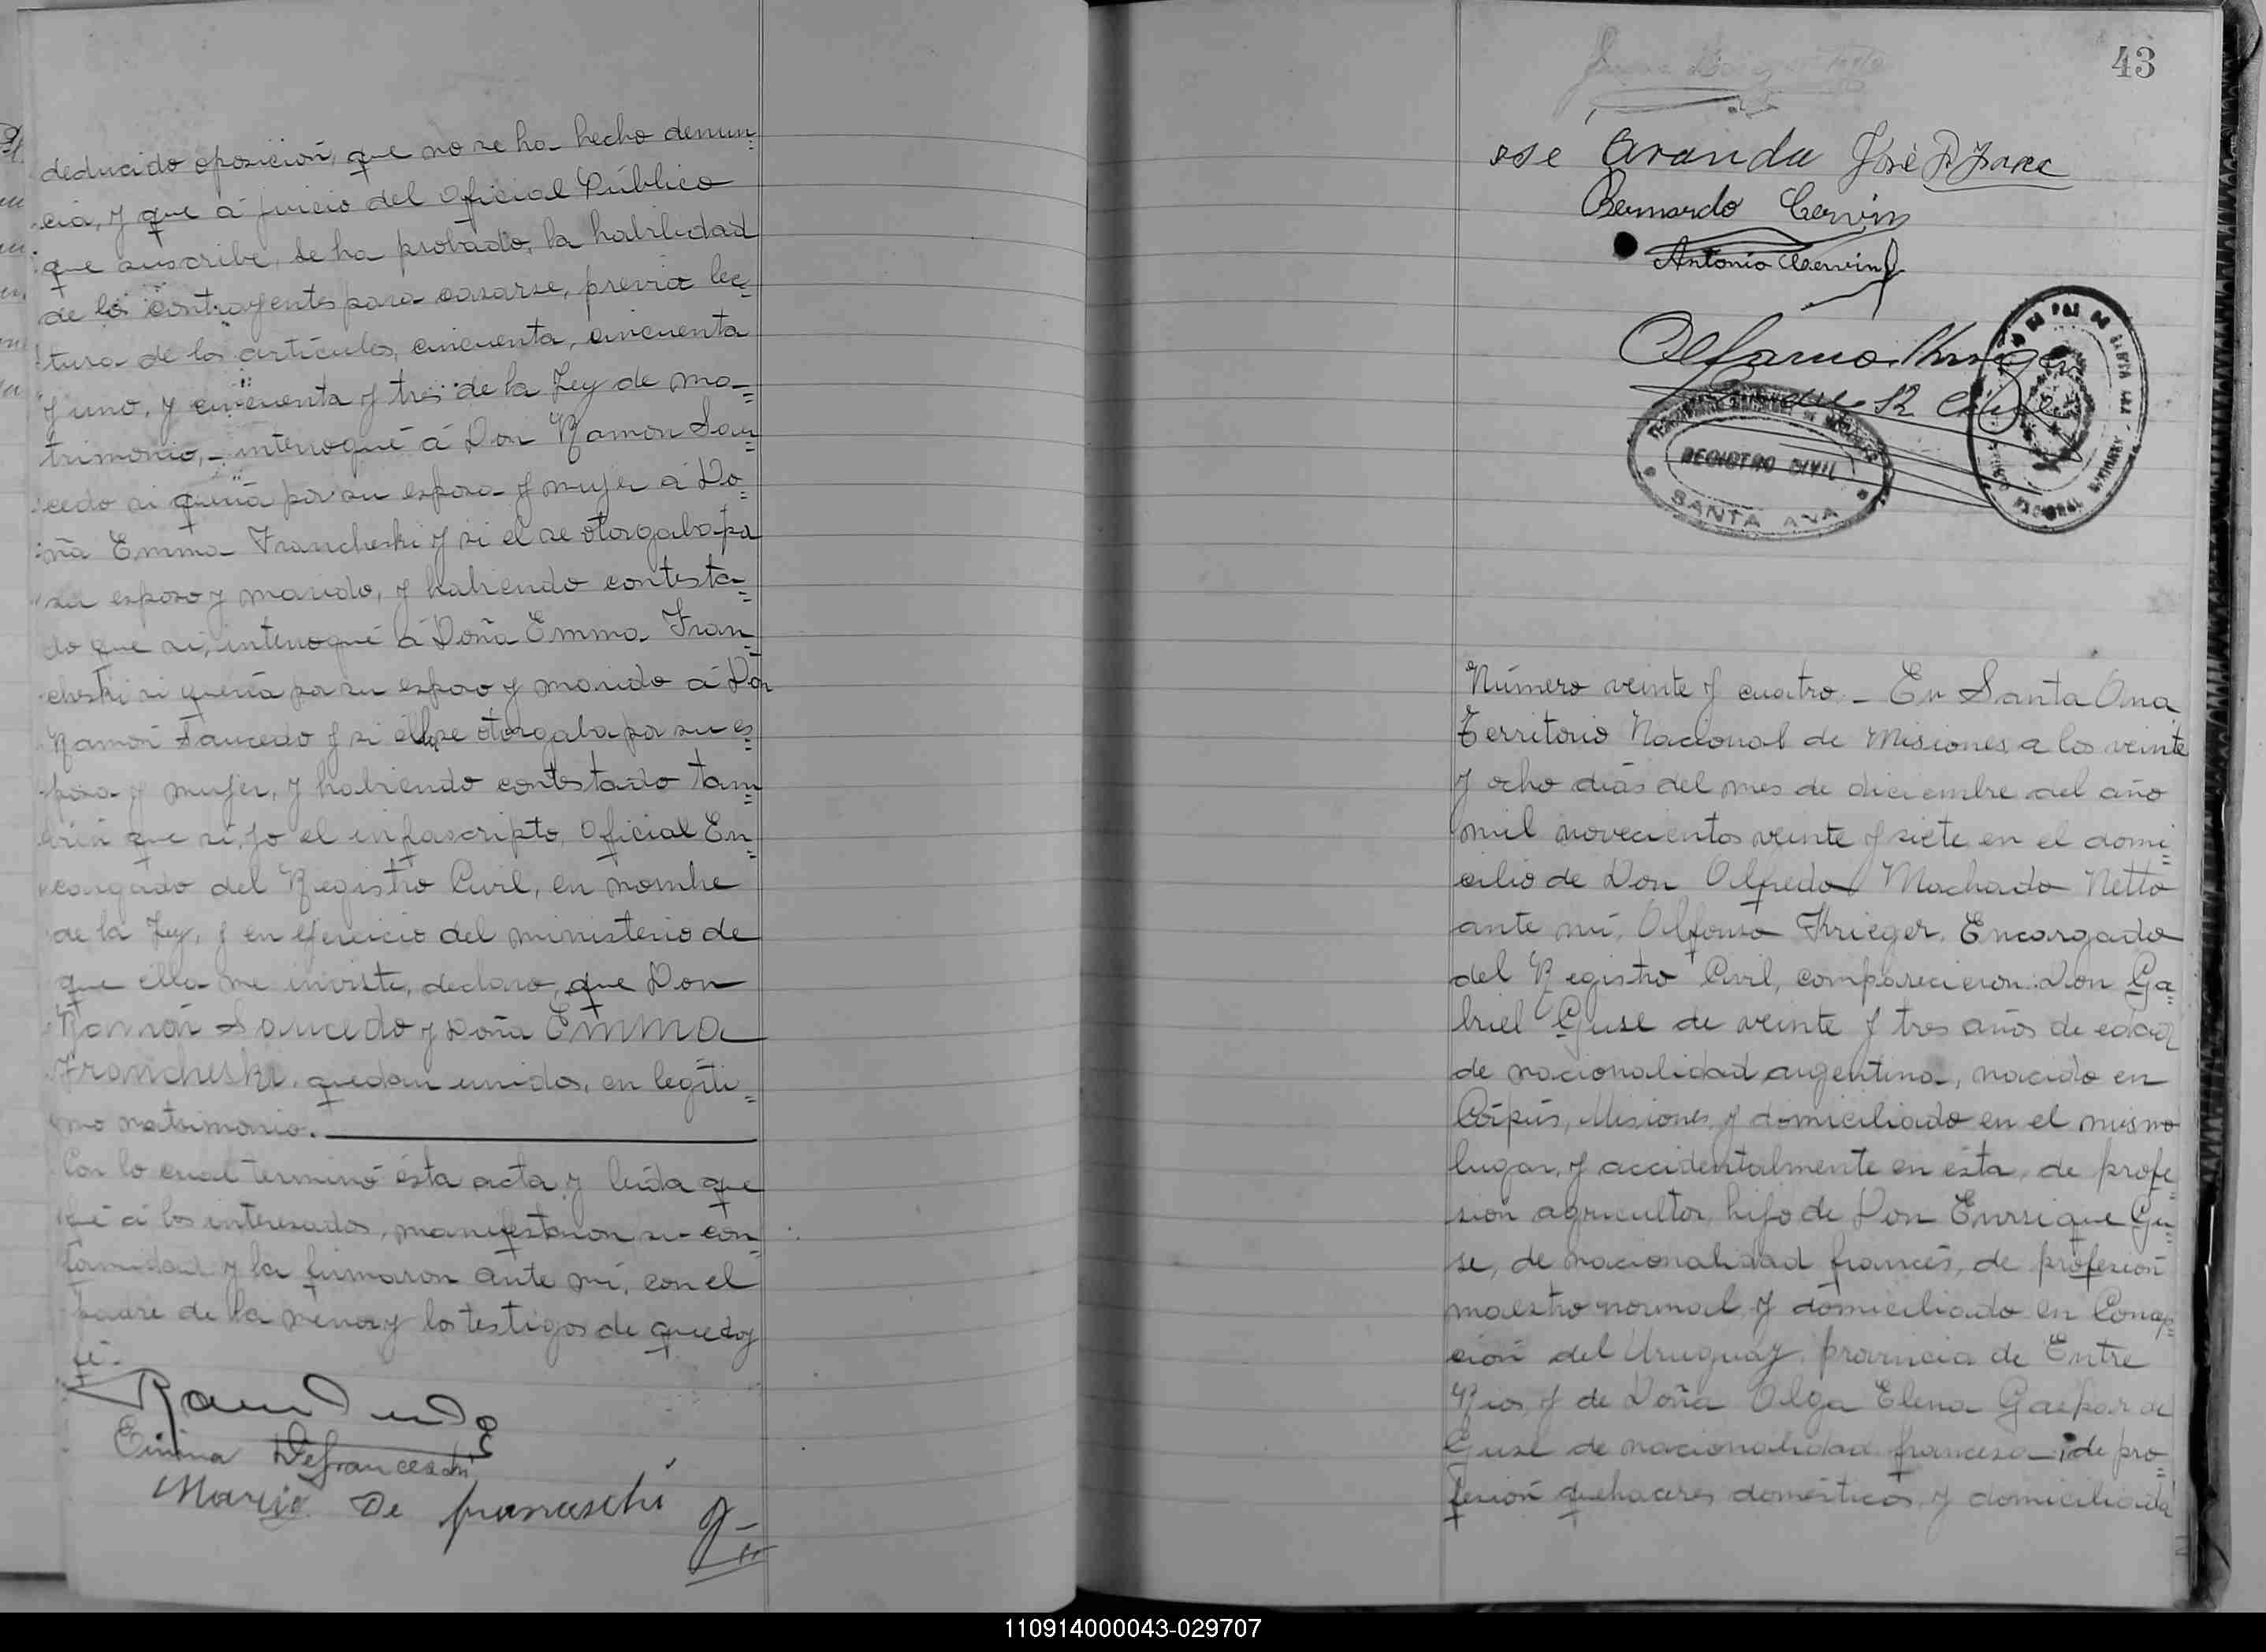 deducido oposición, que no se ha hecho denun=
cia, y que á juicio del Oficial Público
que suscribe, se ha probado, la habilidad
de los contrayentes para casarse, previa lec=
tura de los artículos, cincuenta, cincuenta
y uno, y cincuenta y tres de la Ley de ma=
trimonio, interrogué á Don Ramón Sau=
cedo si quería por su esposa y mujer á Do=
ña Emma Francheski y si el se otorgaba por
su esposo y marido, y habiendo contesta=
do que si, interrogué á Doña Emma Fran=
cheski si quería por su esposo y marido á Don
Ramón Saucedo y si ella se otorgaba por su es=
posa y mujer, y habiendo contestado tam=
bién que si, yo el infrascripto, Oficial En=
cargado del Registro Civil, en nombre
de la Ley, y en ejercicio del ministerio de
que ella me inviste, declaro, que Don
Ramón Saucedo y Doña Emma
Francheski, quedan unidos, en legíti=
mo matrimonio.
Con lo cual terminó ésta acta y leída que
fué á los interesados, manifestaron su con=
formidad y la firmaron ante mí, con el
padre de la menor y los testigos de que doy
fé.
Emma Defranceschi
Mario De franceschi
43
Aranda José
Bernardo Cervin
Antonio Cervin
REGISTRO CIVIL
SANTA ANA
Número veinte y cuatro. _ En Santa Ana
Territorio Nacional de Misiones, a los veinte
y ocho días del mes de diciembre del año
mil novecientos veinte y siete, en el domi=
cilio de Don Alfredo Machado Netto
ante mí, Alfonso Krieger, Encargado
del Registro Civil, comparecieron: Don Ga=
briel Guse de veinte y tres años de edad
de nacionalidad argentina, nacido en
Córpus, Misiones, y domiciliado en el mismo
lugar, y accidentalmente en ésta, de profe=
sión agricultor, hijo de Don Enrrique Gu=
se, de nacionalidad francés, de profesión
maestro normal y domiciliado en Concep=
ción del Uruguay, provincia de Entre
Rios, y de Doña Olga Elena Gaspar de
Guse de nacionalidad francesa, de pro=
fesión quehaceres domésticos, y domiciliada
110914000043-029707